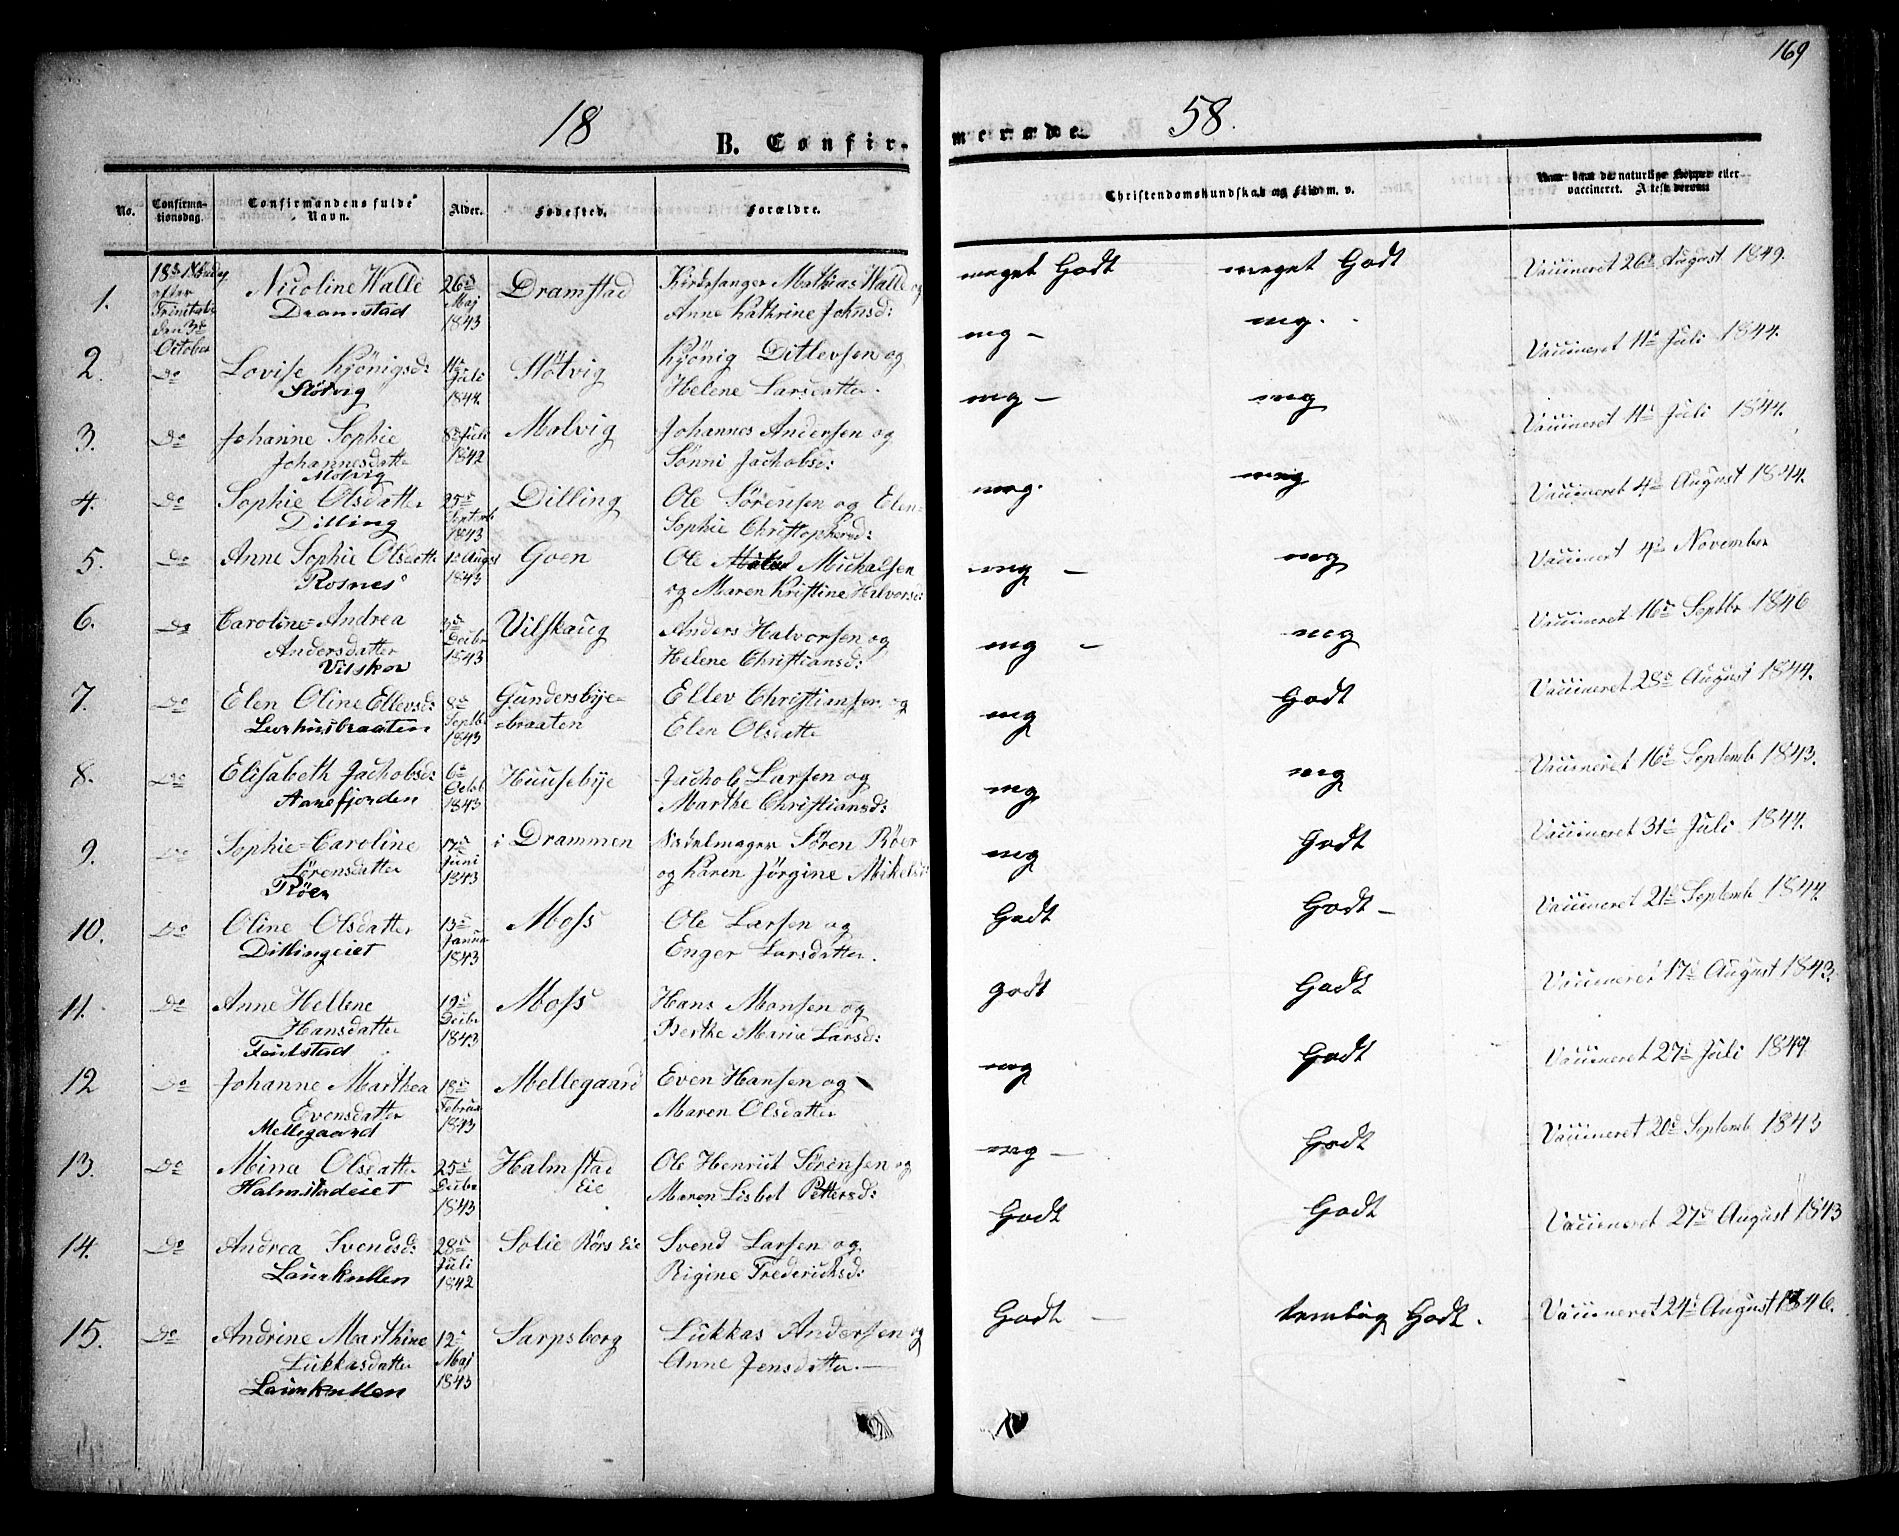 169
18 58.
B. Confirmerede
No.
Confirmationsdag.
Confirmandens fulde Navn.
Alder.
Fødested.
Forældre.
Christendomskundskab og Flid m. v.
Naar havt de naturlige Kopper eller vaccineret. Attest derom
1. 18de Søndag efter Trinitatis den 3de October
Nicoline Walle
Dramstad
26de Maj 1843
Dramstad
Kirkesanger Mathias Walle og
Anne Kathrine Johnsd:
meget Godt meget Godt
Vaccineret 26de August 1849.
2. Do Lovise Kjönigsd:
Støtvig
11te Juli 1844
Støtvig
Kjönig Ditlevsen og
Helene Larsdatter.
mg - mg.
Vaccineret 11te Juli 1844.
3. Do Johanne Sophie
Johannesdatter
Molvig
8de Juli 1842
Malvig
Johannes Andersen og
Sønni Jachobsd:
mg - mg
Vaccineret 11te Juli 1844.
4. Do Sophie Olsdatter
Dilling
25de Septemb 1843
Dilling
Ole Sørensen og Elen
Sophie Christophersd:
mg. mg
Vaccineret 4de August 1844.
5. Do Anne Sophie Olsdatte
Rosnes
1ste August 1843
Goen
Ole Michalsen
og Maren Kristine Halvorsd:
mg - mg
Vaccineret 4de November
6. Do Caroline Andrea
Andersdatter
Vilskov
3de Decbr 1843
Vilskaug
Anders Halvorsen og
Helene Christiansd:
mg - mg
Vaccineret 16de Septbr 1846
7. Do Elen Oline Ellevsd:
Leirhusbraaten
8de Septbr 1843
Gundersbye-
=braaten
Ellev Christiansen og
Elen Olsdatte
mg Godt
Vaccineret 28de August 1844.
8. Do Elisabeth Jachobsd:
Aarefjorden
6te Octob 1843
Huusebye
Jachob Larsen og
Marthe Christiansd:
mg mg
Vaccineret 16de Septemb 1843.
9. Do Sophie=Caroline
Sørensdatter
Røer
17de Juni 1843
i Drammen
Sadelmager Søren Røer
og Karen Jørgine Mikelsd:
mg Godt
Vaccineret 31te Juli 1844.
10. Do Oline Olsdatter
Dillingeiet
13de Januar 1843
Moss
Ole Larsen og
Enger Larsdatter.
Godt Godt -
Vaccineret 21de Septemb 1844.
11. Do Anne Hellene
Hansdatter
Feulstad
19de Decbr 1843
Moss
Hans Monsen og
Berthe Maria Larsd:
godt Godt
Vaccineret 17de August 1843.
12 Do Johanne Marthea
Evensdatter
Mellegaard
18de Februar 1843
Mellegaard
Even Hansen og
Maren Olsdatter
mg Godt
Vaccineret 27de Juli 1844.
13. Do Mina Olsdatter
Halmstadeiet
25de Decbr 1843
Halmstad
Eie
Ole Henrick Sørensen og
Maren Lisbet Pettersd:
mg - Godt
Vaccineret 20de Septemb 1843
14. Do Andrea Svendsd:
Laurkullen
28de Juli 1842
Solie Rørs Eie
Svend Larsen og
Rigine Fredericksd:
Godt Godt
Vaccineret 27de August 1843
15. Do Andrine Marthine
Lukkasdatter
Laurkullen
12te Maj 1843
Sarpsborg
Lukkas Andersen og
Anne Jensdatter. -
Godt - temlig Godt.
Vaccineret 24de August 1846.